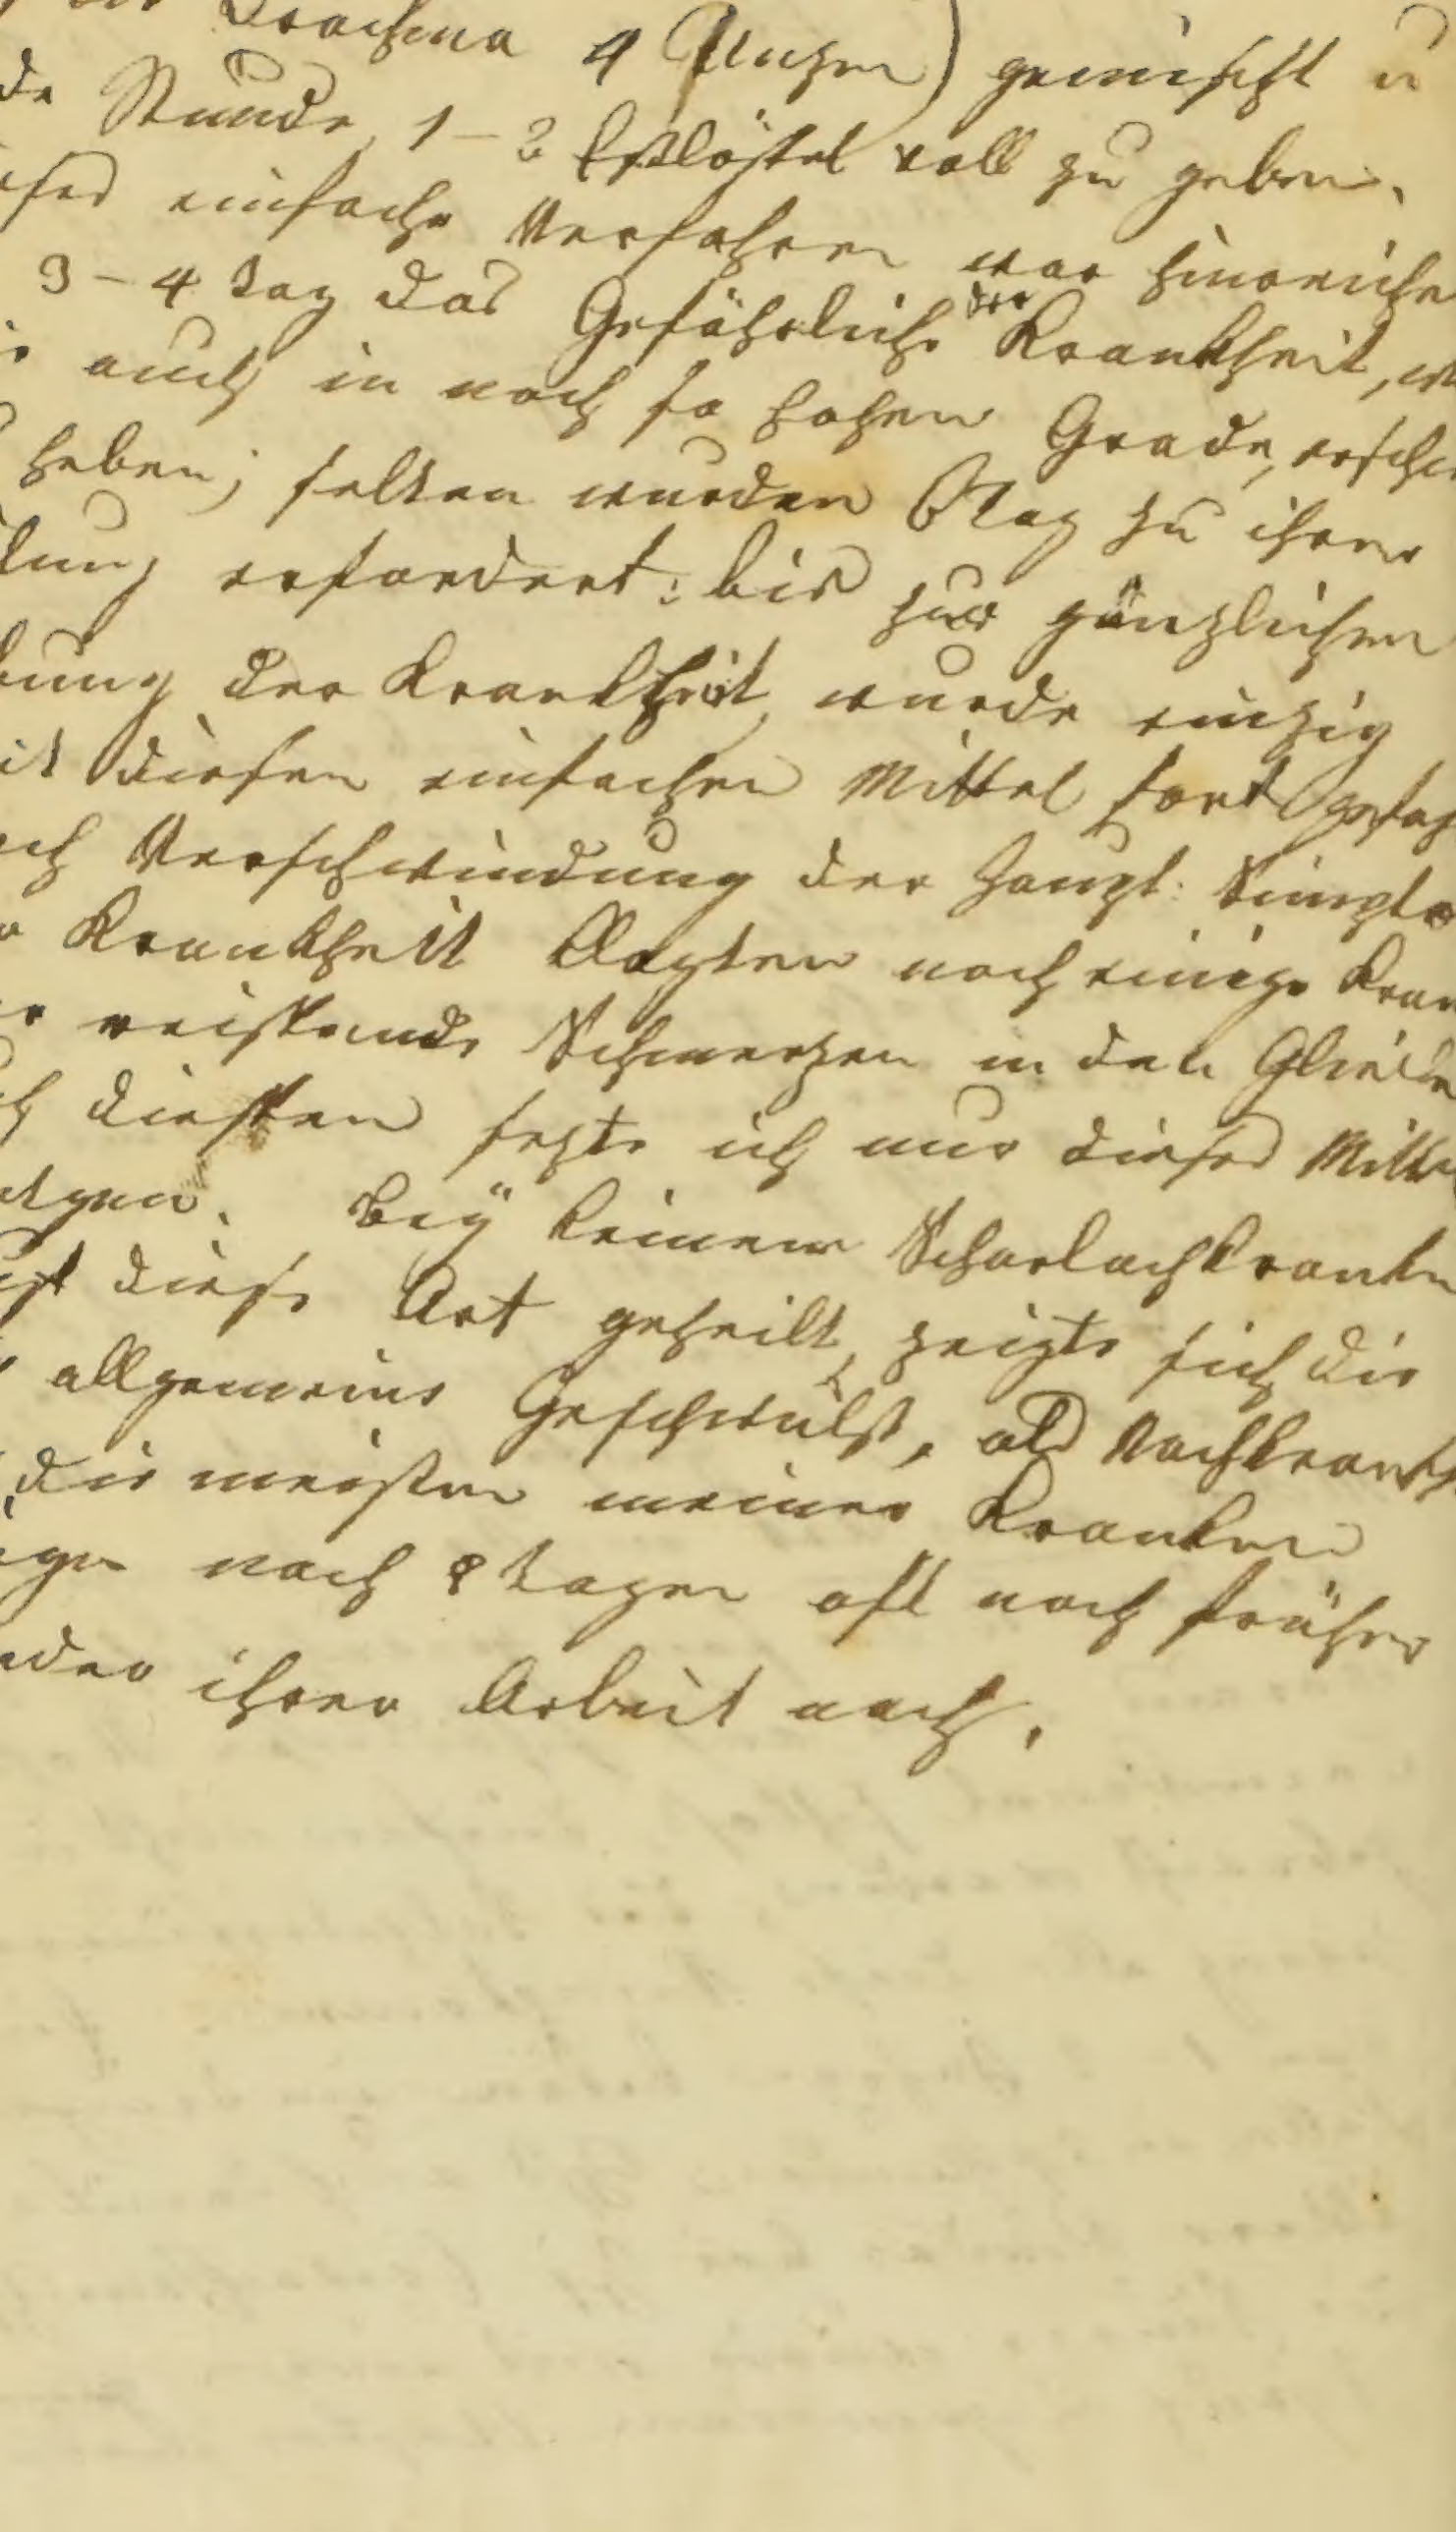 Drachma 4 Unzen) gemischt u
de Stunde 1–2 Eßlöffel voll zu geben.
eses einfache Verfahren war hinreiche
3–4 Tag das Gefährliche der Krankheit, w
auch in noch so hohen Grade, ersch
heben; selten wurden 6 Tag zu ihrer
lung erfordert: bis zur gänzlichen
bung der Krankheit wurde einzig
it diesen einfachen Mittel fort gefah
ch Verschwindung der Haupt: Simpto
r Krankheit klagten noch einige Kran
r reissende Schmerzen in den Gliede
ch diessen sezte ich nur dieses Mitte
tgen. Bey keinem Scharlachkranke
uf diese Art geheilt, zeigte sich die
allgemeine Geschwulst, als Nachkrankh
die meisten meiner Kranken
gen nach 8 Tagen oft noch früher
eder ihrer Arbeit nach.